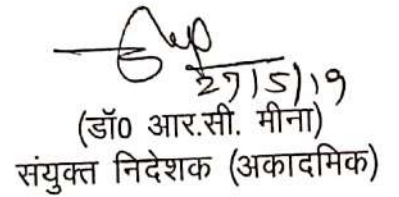 27/5/19
(डॉ0 आर.सी. मीना)
संयुक्त निदेशक (अकादमिक)